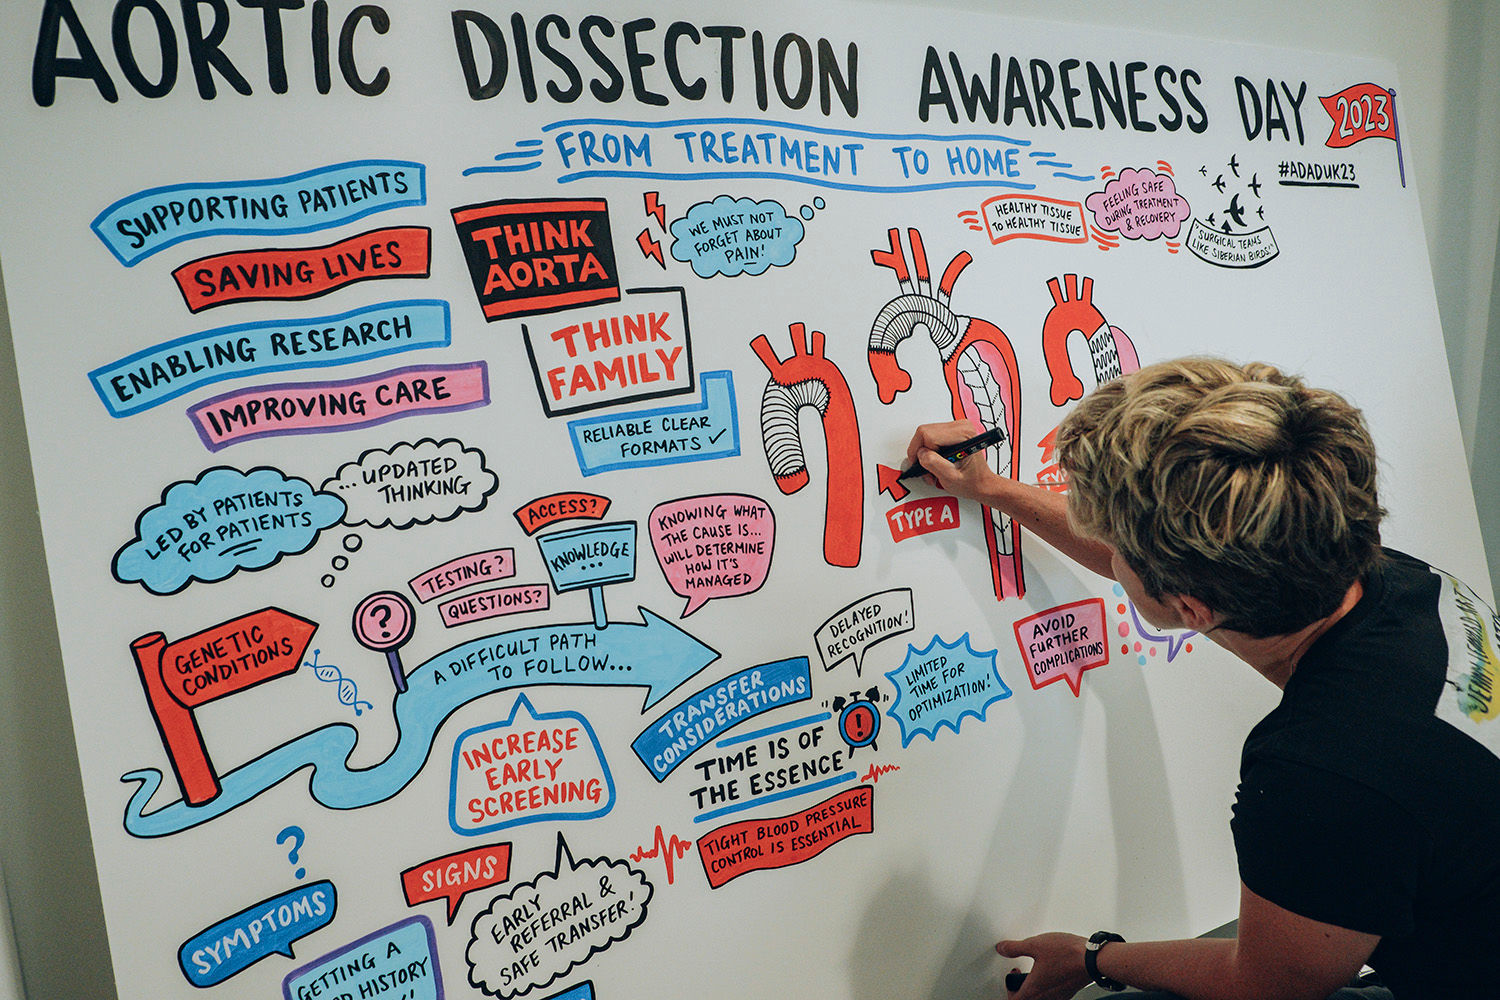 AORTIC DISSECTION AWARENESS DAY 2023
FROM TREATMENT TO HOME
#ADADUK23
SUPPORTING PATIENTS
SAVING LIVES
ENABLING RESEARCH
IMPROVING CARE
THINK
AORTA
THINK
FAMILY
RELIABLE CLEAR
FORMATS ✓
WE MUST NOT
FORGET ABOUT
PAIN!
HEALTHY TISSUE
TO HEALTHY TISSUE
FEELING SAFE
DURING TREATMENT
& RECOVERY
"SURGICAL TEAMS
LIKE SIBERIAN BIRDS!"
LED BY PATIENTS
FOR PATIENTS
... UPDATED
THINKING
ACCESS?
KNOWLEDGE
...
TESTING?
QUESTIONS?
?
KNOWING WHAT
THE CAUSE IS...
WILL DETERMINE
HOW IT'S
MANAGED
TYPE A
GENETIC
CONDITIONS
A DIFFICULT PATH
TO FOLLOW...
DELAYED
RECOGNITION!
AVOID
FURTHER
COMPLICATIONS
LIMITED
TIME FOR
OPTIMIZATION!
TRANSFER
CONSIDERATIONS
TIME IS OF
THE ESSENCE
!
INCREASE
EARLY
SCREENING
TIGHT BLOOD PRESSURE
CONTROL IS ESSENTIAL
?
SYMPTOMS
SIGNS
EARLY
REFERRAL &
SAFE TRANSFER!
GETTING A
HISTORY